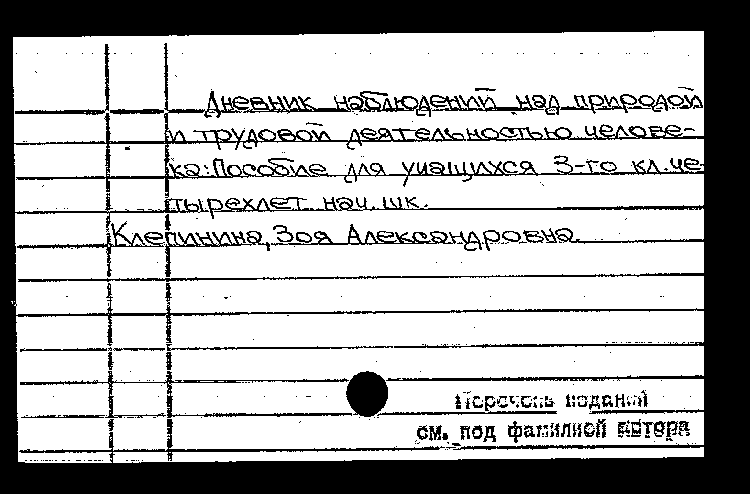 Дневник наблюдений над природой
и трудовой деятельностью челове-
ка: Пособие для учащихся 3-го кл. че-
тырехлет. нач. шк.
Клепинина, Зоя Александровна.
Перечень изданий
см. под фамилией автора